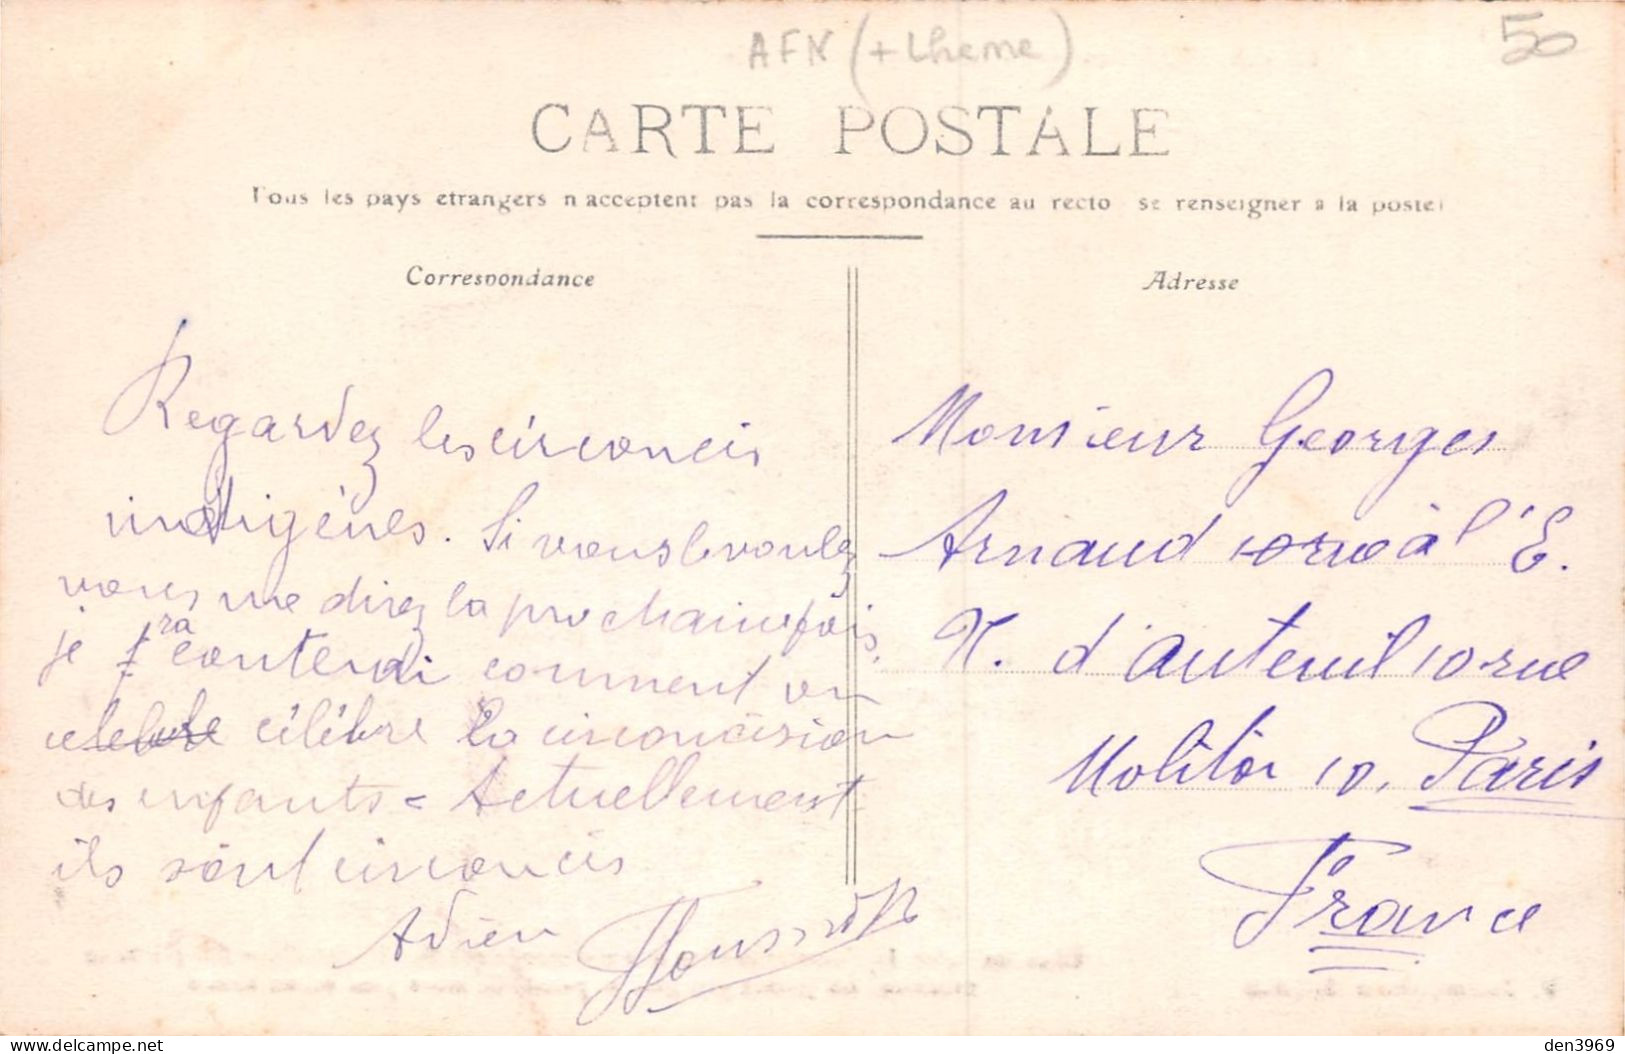 AFN (+ theme)
50
CARTE POSTALE
Tous les pays etrangers n acceptent pas la correspondance au recto se renseigner a la poste)
Correspondance
Regardez les circoncis
indigènes. Si vous le voulez
vous me direz la prochaine fois,
je conterai comment on
celebre célèbre la circoncision
des enfants = Actuellement
ils sont circoncis
Adieu
Adresse
Monsieur Georges
Arnaud 10 rue à l'E.
N. d'Auteuil 10 rue
Molitor 10, Paris
France
delcampe.net
den3969